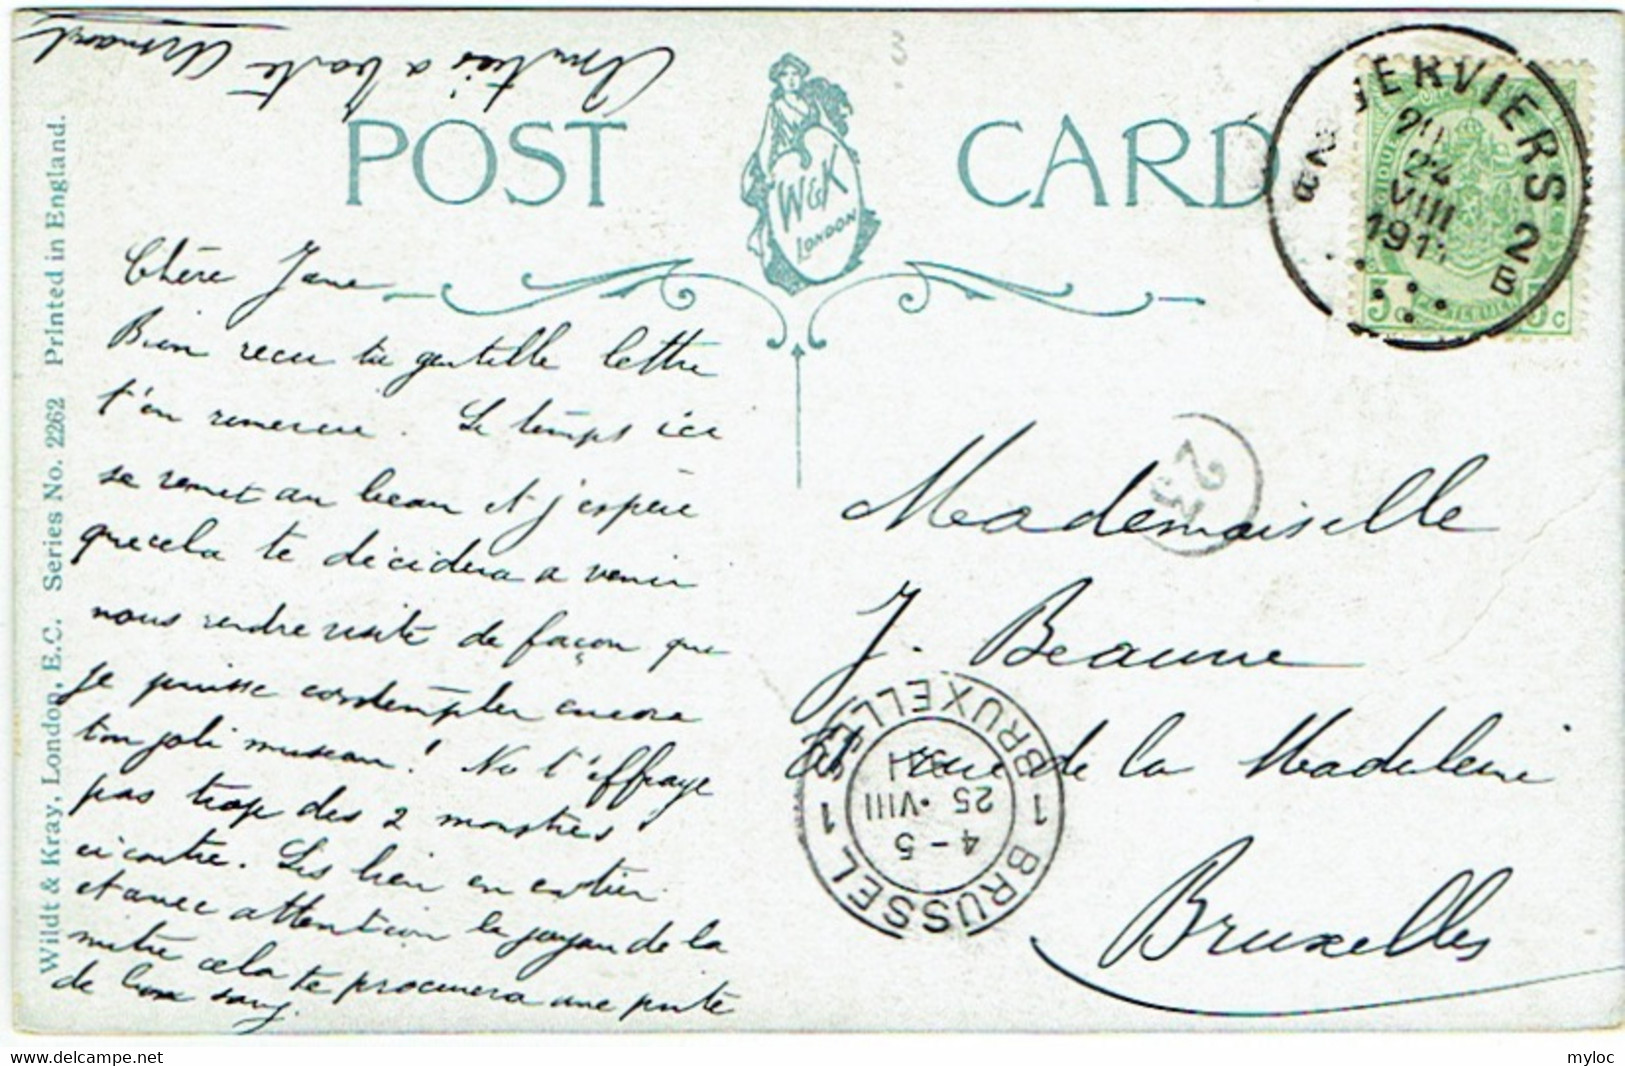 POST CARD
W&K
LONDON
Wildt & Kray, London, E.C. Series No. 2262 Printed in England.
Amitiés a Armand
VERVIERS 2
24
VIII
191
B
5c 5c
Chère Jane
Bien recu ta gentille lettre
t'en remercie. Le temps ici
se remet au beau et j'espère
que cela te décidera a venir
nous rendre visite de façon que
je puisse contempler encore
ton joli museau! Ne t'effraye
pas trop des 2 monstres
ci contre. Lis bien en entier
et avec attention le de la
mitre cela te procurera une pinte
de bon sang.
23
Mademoiselle
J. Beaune
rue de la Madeleine
Bruxelles
1 BRUXELLES 1 BRUSSEL
4-5
25 VIII
myloc